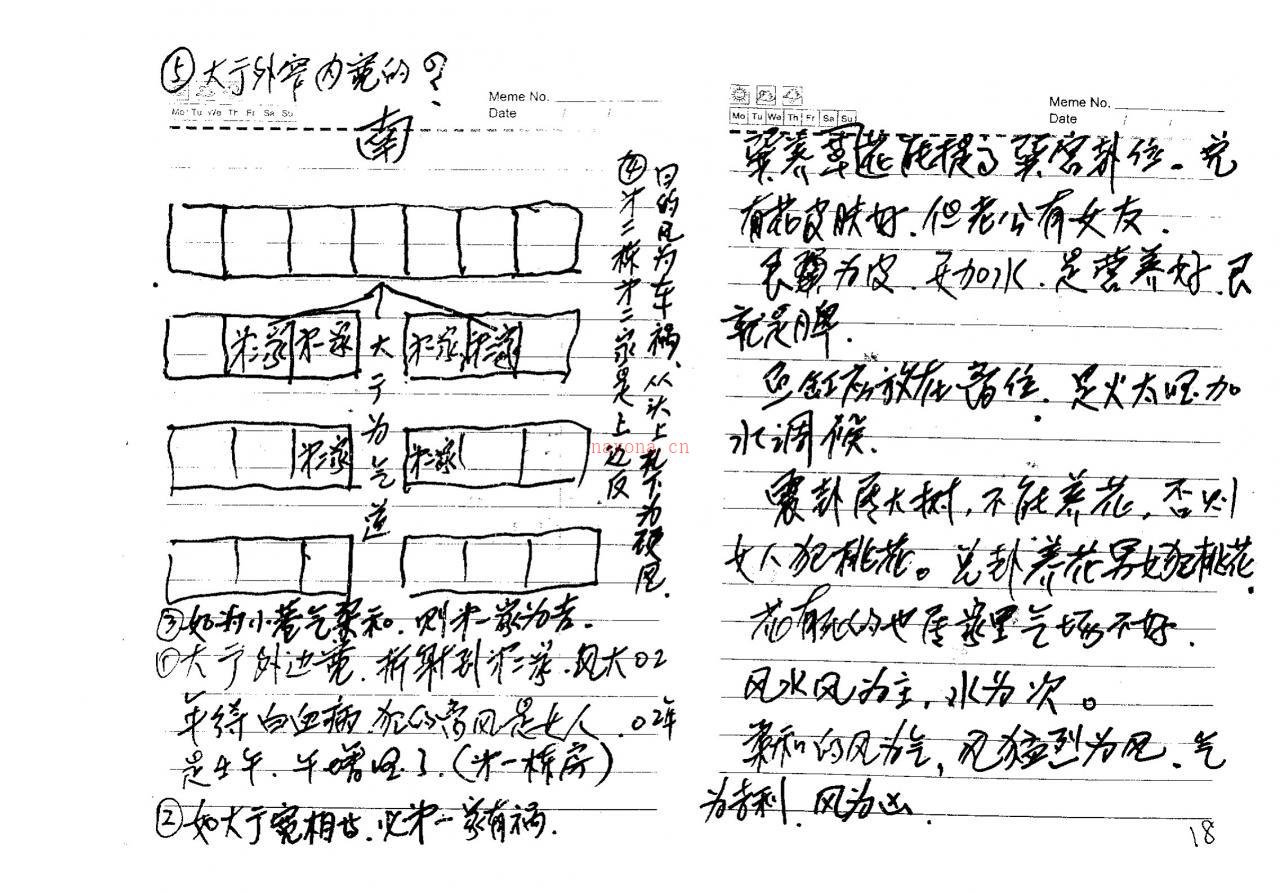 ⑤大亍外窄内宽的?
Meme No.
Date / /
Mo Tu We Th Fr Sa Su
南
第二家 第一家
第一家 第二家
第二家
第二家
大亍为气道
④第二栋第二家是上边反
日的风为车祸、从头上扎下为硬风.
naxona.cn
③如为小巷气柔和.则第一家为吉.
①大亍外边宽.折射到第二家.风大02
年得白血病.犯的 风是女人.02年
是午年.午 旺了.(第一栋房)
②如大亍宽相当.必第一家有祸.
Meme No.
Date / /
Mo Tu We Th Fr Sa Su
巽养草花能提高巽宫卦位.兑
有花皮肤好.但老公有女友.
艮 为皮.要加水.是营养好.艮
就是脾.
鱼缸放在 位.是火太旺.加
水调候.
震卦属大树,不能养花,否则
女人犯桃花。兑卦养花男女犯桃花.
花有死的也属家里气场不好.
风水风为主,水为次。
柔和的风为气,风猛烈为风.气
为吉利.风为凶.
18